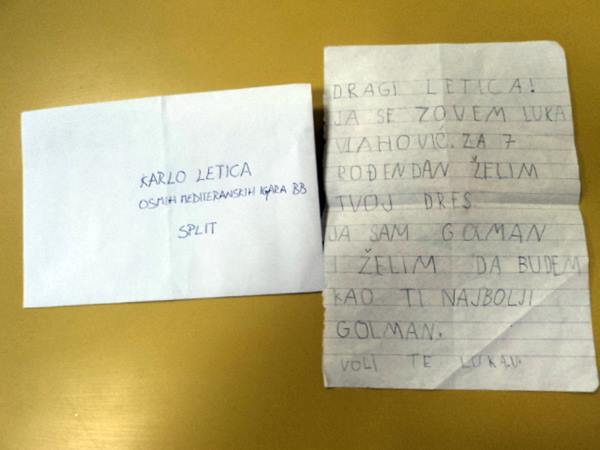 KARLO LETICA
OSMIH MEDITERANSKIH IGARA BB
SPLIT
DRAGI LETICA!
JA SE ZOVEM LUKA
VLAHOVIĆ. ZA 7
ROĐENDAN ŽELIM
TVOJ DRES
JA SAM GOLMAN
I ŽELIM DA BUDEM
KAO TI NAJBOLJI
GOLMAN.
VOLI TE LUKA.V.